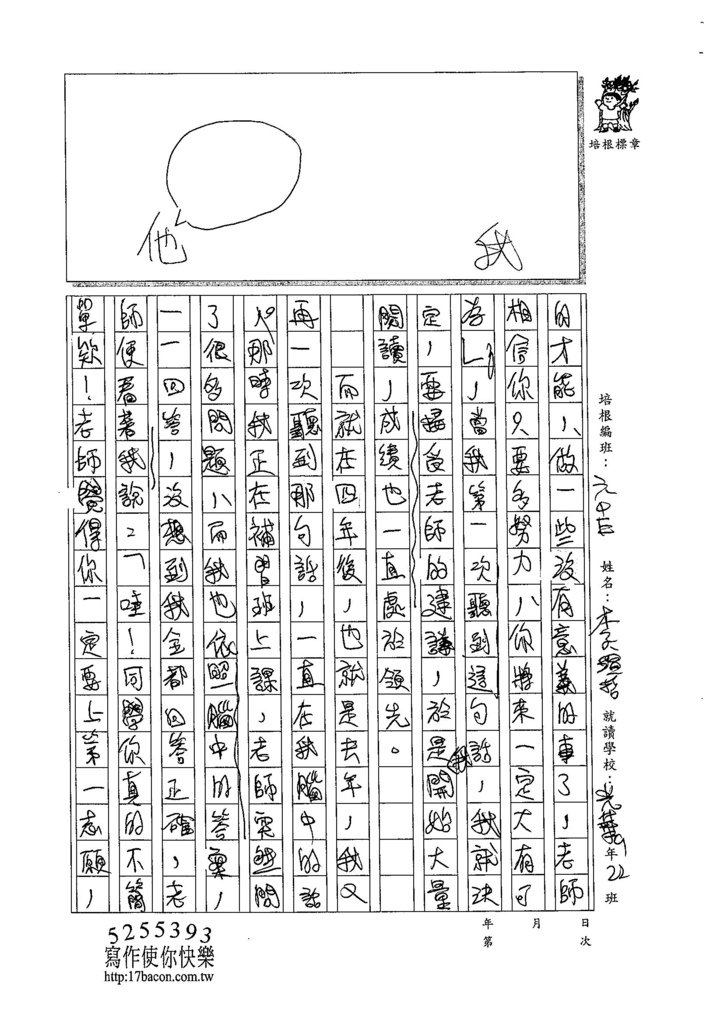 培根標章
我
他
培根編班：六中古
姓名：李
就讀學校：光華
年22班
日次
月
年第
的才能，做一些沒有意義的事了，老師
相信你只要多努力，你將來一定大有可
為」，當我第一次聽到這句話，我就決
定，要接受老師的建議，於是我開始大量
閱讀，成績也一直處於領先。
而就在四年後，也就是去年，我又
再一次聽到那句話，一直在我腦中的話
，那時我正在補習班上課，老師突然問
了很多問題，而我也依照腦中的答案，
一一回答，沒想到我全都回答正確，老
師便看著我說：「哇！同學你真的不簡
單欸！老師覺得你一定要上第一志願，
5255393
寫作使你快樂
http:17bacon.com.tw